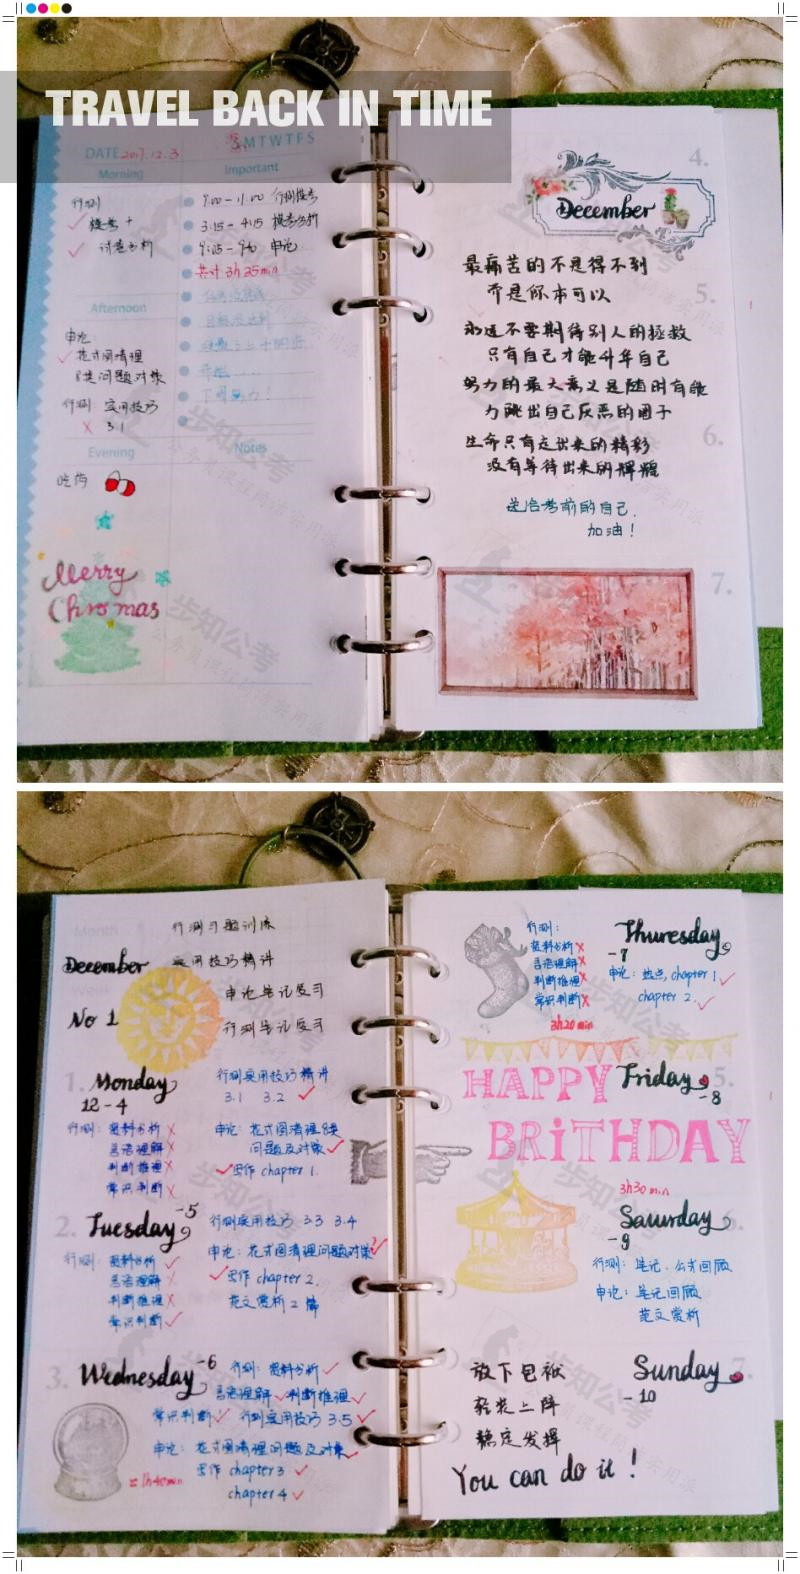 TRAVEL BACK IN TIME
DATE 2017.12.3
S M T W T F S
Morning
Important
行测
模考+
试卷分析
9:00-11:00 行测模考
3:15-4:15 模考分析
申论
共计 3h 25min
Afternoon
申论
花式图清理
8类问题对策
行测 实用技巧
3.1
Evening
Notes
吃药
Merry
Chrismas
December
4.
最痛苦的不是得不到
而是你本可以
5.
永远不要期待别人的拯救
只有自己才能升华自己
努力的最大意义是随时有能
力跳出自己厌恶的圈子
6.
生命只有走出来的精彩
没有等待出来的辉煌
送给考前的自己.
加油!
7.
步知公考
Month
December
Week
No 1
行测习题训练
实用技巧精讲
申论笔记复习
行测笔记复习
1. Monday
12-4
行测实用技巧精讲
3.1 3.2
行测: 资料分析
言语理解
判断推理
常识判断
申论: 花式图清理8类
问题及对策
写作 chapter 1.
2. Tuesday -5
行测实用技巧 3.3 3.4
行测: 资料分析
言语理解
判断推理
常识判断
申论: 花式图清理问题对策
写作 chapter 2.
范文赏析2篇
3. Wednesday -6
行测: 资料分析
言语理解 判断推理
常识判断 行测实用技巧 3.5
申论: 花式图清理问题及对策
写作 chapter 3
chapter 4
1h40min
Thuresday
-7
行测:
资料分析
言语理解
判断推理
常识判断
3h20min
申论: 热点, chapter 1.
chapter 2.
HAPPY
BRiTHDAY
Friday 5.
-8
3h30min
Saturday 6.
-9
行测: 笔记、公式回顾
申论: 笔记回顾
范文赏析
Sunday 7.
-10
放下包袱
轻装上阵
稳定发挥
You can do it !